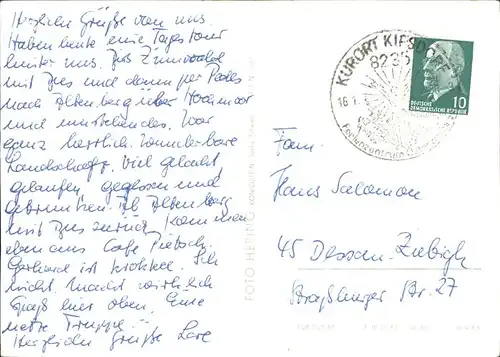 Herzliche Grüße von uns.
Haben heute eine Tagestour
hinter uns. Bis Zinnwald
mit Bus und dann per Pedes
nach Altenberg über Hochmoor
und umstehendes. War
ganz herrlich. Wunderbare
Landschaft. Viel gelacht,
gelaufen, gegessen und
getrunken. Ab Altenberg
mit Bus zurück. Kommen
eben aus Café
Gerhard ist Ich
nicht. Macht wirklich
Spaß hier oben. Eine
nette Truppe!
Herzliche Grüße Lore
FOTO HERING
KURORT KIPSDORF
8235
16.1.
DEUTSCHE
DEMOKRATISCHE REPUBLIK
10
Fam.
Hans Salomon
45 Dessau-Ziebigk
Straßburger Str. 27